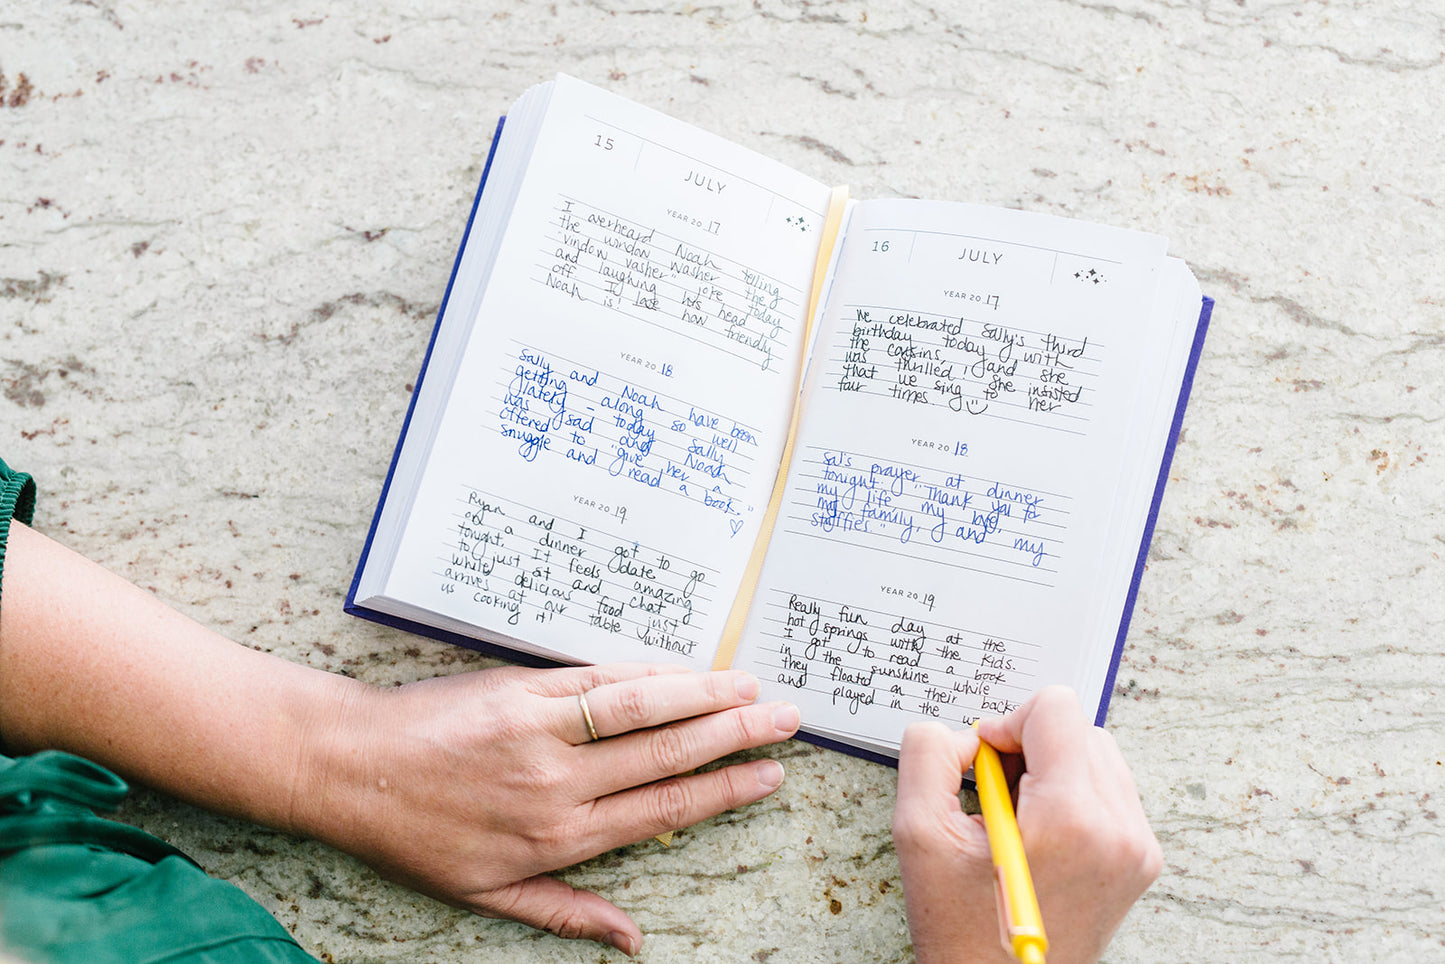 15
JULY
YEAR 20 17
I overheard Noah telling
the window washer the
"vindow vasher" joke today
and laughing his head
off. I love how friendly
Noah is!
YEAR 20 18
Sally and Noah have been
getting along so well
lately – today Sally
was sad and Noah
offered to "give her a
snuggle and read a book."
YEAR 20 19
Ryan and I got to go
on a dinner date
tonight. It feels amazing
to just sit and chat
while delicious food just
arrives at our table without
us cooking it!
16
JULY
YEAR 20 17
We celebrated Sally's third
birthday today with
the cousins, and she
was thrilled! She insisted
that we sing to her
four times.
YEAR 20 18
Sal's prayer at dinner
tonight: "Thank you for
my life, my love,
my family, and my
stuffies"
YEAR 20 19
Really fun day at the
hot springs with the kids.
I got to read a book
in the sunshine while
they floated on their backs
and played in the w